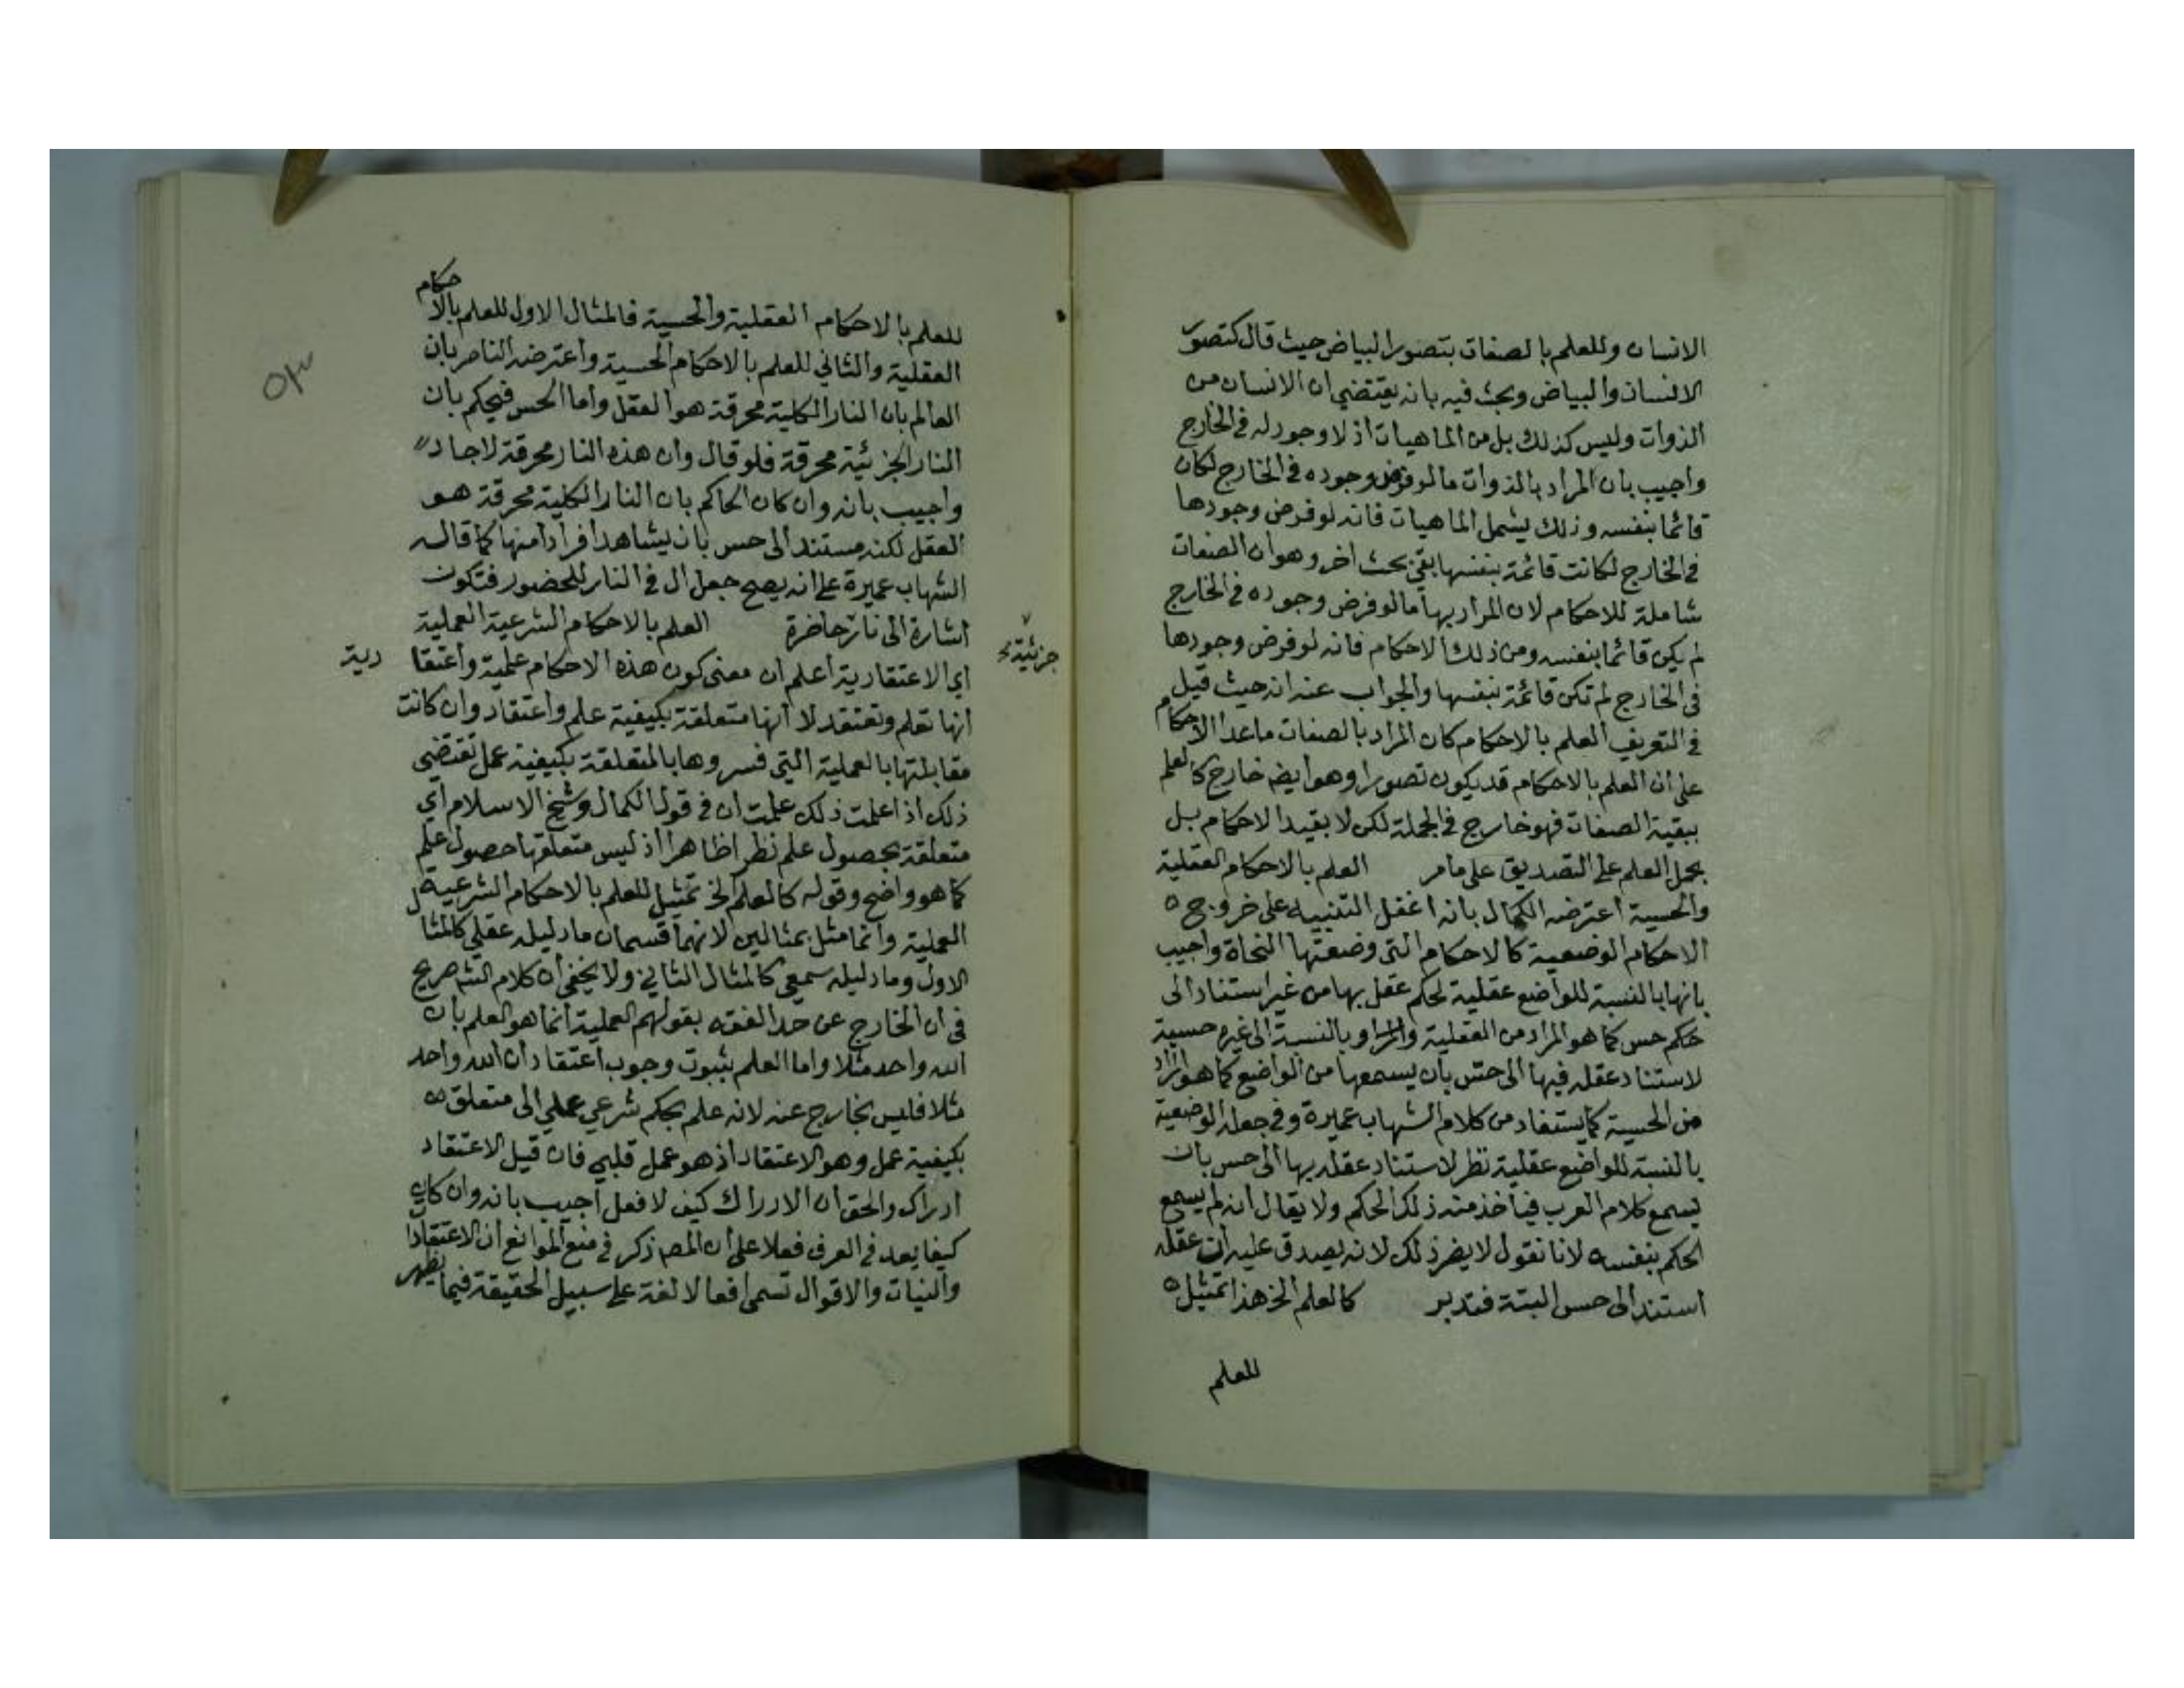 الانسان وللعلم بالصفات بتصور البياض حيث قال كتصور
الانسان والبياض وبحث فيه بانه يقتضي ان الانسان من
الذوات وليس كذلك بل من الماهيات اذ لا وجود له في الخارج
واجيب بان المراد بالذوات ما لو فرض وجوده في الخارج لكان
قائما بنفسه وذلك يشمل الماهيات فانه لو فرض وجودها
في الخارج لكانت قائمة بنفسها بقي بحث اخر وهو ان الصفات
شاملة للاحكام لان المراد بها ما لو فرض وجوده في الخارج
لم يكن قائما بنفسه ومن ذلك الاحكام فانه لو فرض وجودها
في الخارج لم تكن قائمة بنفسها والجواب عنه انه حيث قيل
في التعريف العلم بالاحكام كان المراد بالصفات ما عدا الاحكام
على ان العلم بالاحكام قد يكون تصورا وهو ايضه خارج كالعلم
ببقية الصفات فهو خارج في الجملة لكن لا بقيد الاحكام بل
بحمل العلم على التصديق على ما مر العلم بالاحكام العقلية
والحسية اعترضه الكمال بانه اغفل التنبيه على خروج
الاحكام الوضعية كالاحكام التي وضعتها النحاة واجيب
بانها بالنسبة للواضع عقلية لحكم عقل بها من غير استناد الى
حكم حس كما هو المراد من العقلية وبالنسبة الى غيره حسية
لاستناد عقله فيها الى حس بان يسمعها من الواضع كما هو المراد
من الحسية كما يستفاد من كلام الشهاب عميرة وفي جعله الوضعية
بالنسبة للواضع عقلية نظر لاستناد عقله بها الى حس بان
يسمع كلام العرب فيأخذ منه ذلك الحكم ولا يقال انه لم يسمع
الحكم بنفسه لانا نقول لا يضر ذلك لانه يصدق عليه ان عقله
استند الى حس البتة فتدبر كالعلم الخ هذا تمثيل
للعلم
للعلم بالاحكام العقلية والحسية فالمثال الاول للعلم بالاحكام
العقلية والثاني للعلم بالاحكام الحسية واعترضه الناصر بان
العالم بان النار الكلية محرقة هو العقل واما الحس فيحكم بان
النار الجزئية محرقة فلو قال وان هذه النار محرقة لاجاد
واجيب بانه وان كان الحاكم بان النار الكلية محرقة هو
العقل لكنه مستند الى حس بان يشاهد افرادا منها كما قاله
الشهاب عميرة على انه يصح جعل ال في النار للحضور فتكون
اشارة الى نار حاضرة العلم بالاحكام الشرعية العملية
جزئية
اي الاعتقادية اعلم ان معنى كون هذه الاحكام علمية واعتقادية
انها تعلم وتعتقد لا انها متعلقة بكيفية علم واعتقاد وان كانت
مقابلتها بالعملية التي فسروها بالمتعلقة بكيفية عمل تقتضي
ذلك اذا علمت ذلك علمت ان في قول الكمال وشيخ الاسلام اي
متعلقة بحصول علم نظرا ظاهرا اذ ليس متعلقها حصول علم
كما هو واضح وقوله كالعلم الخ تمثيل للعلم بالاحكام الشرعية
العملية وانما مثل بمثالين لانهما قسمان ما دليله عقلي كالمثال
الاول وما دليله سمعي كالمثال الثاني ولا يخفى ان كلام الش صريح
في ان الخارج عن حد الفقه بقولهم العملية انما هو العلم بان
الله واحد مثلا واما العلم بثبوت وجوب اعتقاد ان الله واحد
مثلا فليس بخارج عنه لانه علم بحكم شرعي عملي الى متعلق
بكيفية عمل وهو الاعتقاد اذ هو عمل قلبي فان قيل الاعتقاد
ادراك والحق ان الادراك كيف لا فعل اجيب بانه وان كان
كيفا يعد في العرف فعلا على ان المصه ذكر في منع الموانع ان الاعتقادا
والنيات والاقوال تسمى افعالا لغة على سبيل الحقيقة فيما يظهر